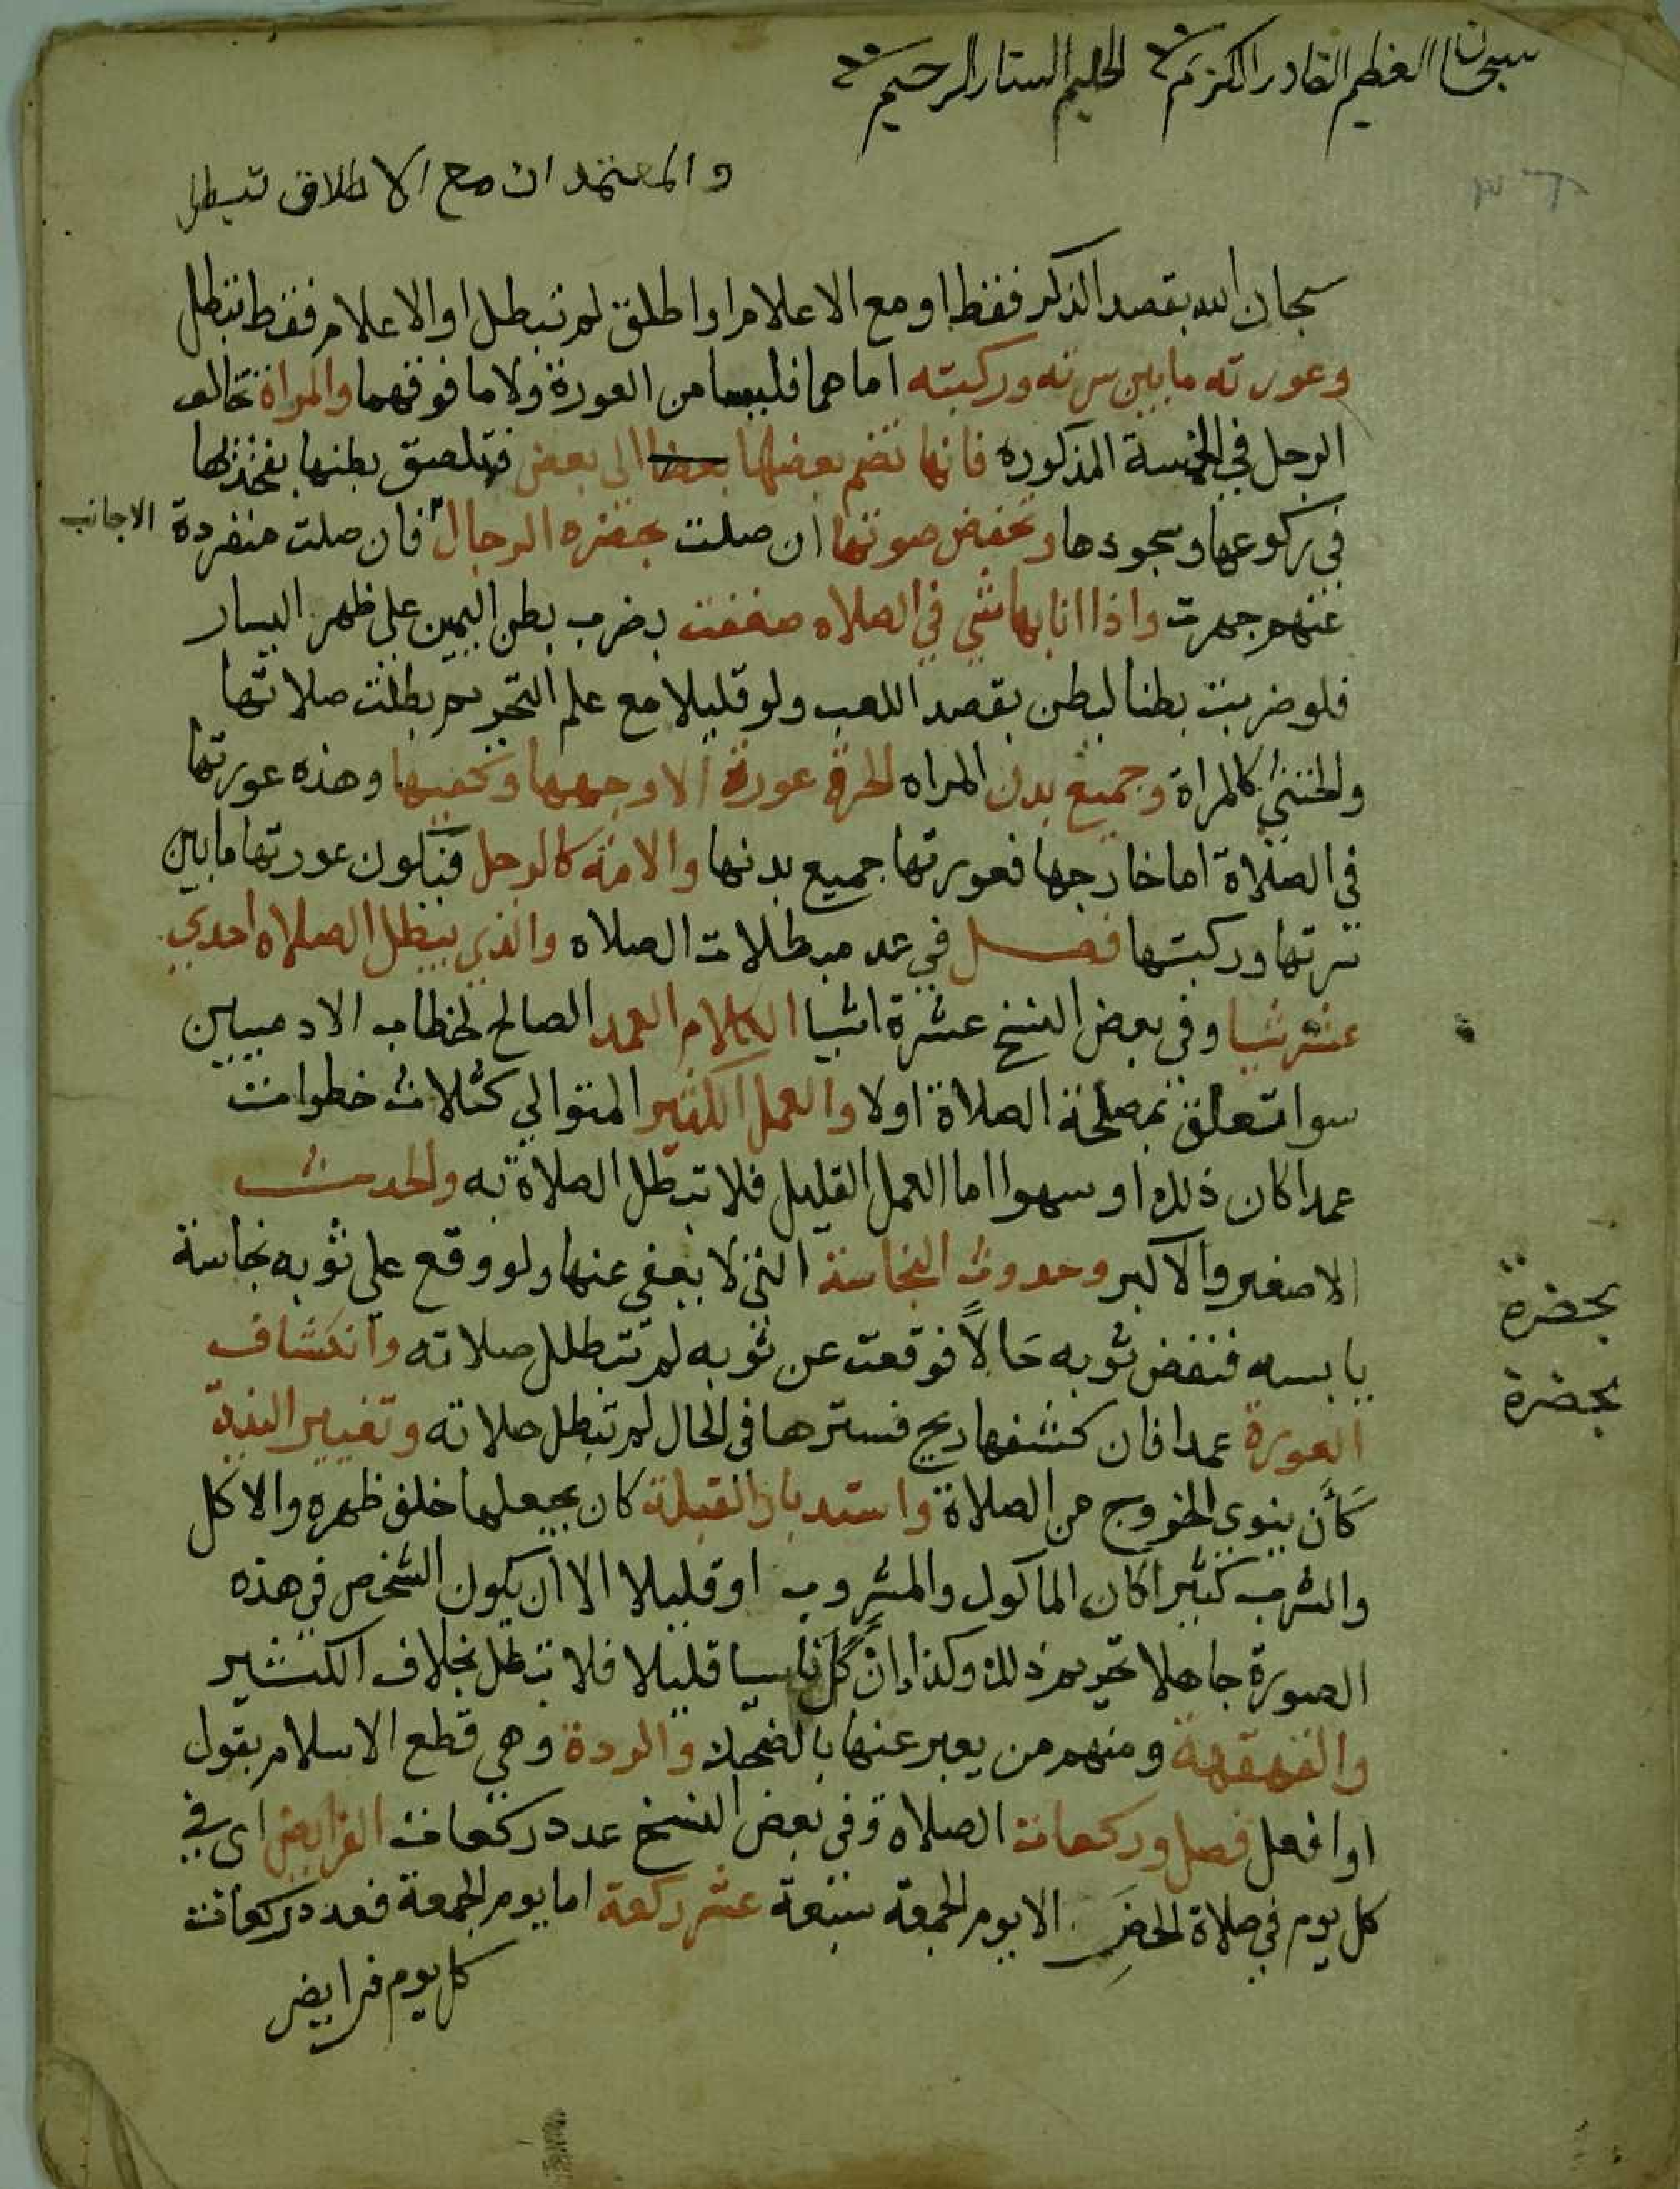 سبحان العظيم القادر الكريم الحليم الستار الرحيم
والمعتمد ان مع الاطلاق تبطل
سبحان الله بقصد الذكر فقط او مع الاعلام او اطلق لم تبطل او الاعلام فقط تبطل
وعورته مابين سرته وركبته اما هما فليسا من العورة ولا ما فوقهما والمراة تخالف
الرجل في الخمسة المذكوره فانها تضم بعضها بعضا الى بعض فتلصق بطنها بفخذيها
في ركوعها وسجودها وتخفض صوتها ان صلت بحضره الرجال فان صلت منفردة
الاجانب
عنهم جهرت واذا انابها شي في الصلاه صفقت بضرب بطن اليمين على ظهر اليسار
فلو ضربت بطنا لبطن بقصد اللعب ولو قليلا مع علم التحريم بطلت صلاتها
والخنثى كالمراة وجميع بدن المراه الحرة عورة الا وجهها وكفيها وهذه عورتها
في الصلاة اما خارجها فعورتها جميع بدنها والامة كالرجل فتكون عورتها مابين
سرتها وركبتها فصل في عد مبطلات الصلاه والذي يبطل الصلاه احدى
عشر شيا وفي بعض النسخ عشرة اشيا الكلام العمد الصالح لخطاب الادميين
سوا تعلق بمصلحة الصلاة اولا والعمل الكثير المتوالي كثلاث خطوات
عمدا كان ذلك او سهوا اما العمل القليل فلا تبطل الصلاة به والحدث
الاصغر والاكبر وحدوث النجاسة التي لا يعفى عنها ولو وقع على ثوبه نجاسة
يابسه فنفض ثوبه حَالاً فوقعت عن ثوبه لم تبطل صلاته وانكشاف
العورة عمدا فان كشفها ريح فسترها في الحال لم تبطل صلاته وتغيير النية
كَأَن ينوي الخروج من الصلاة واستدبار القبلة كان يجعلها خلف ظهره والاكل
والشرب كثيرا كان الماكول والمشروب او قليلا الا ان يكون الشخص في هذه
الصورة جاهلا تحريم ذلك وكذا إِنْ أكل ناسيا قليلا فلا تبطل بخلاف الكثير
والقهقهة ومنهم من يعبر عنها بالضحك والردة وهي قطع الاسلام بقول
او افعل فصل وركعات الصلاة وفي بعض النسخ عدد ركعات الفرايض اى في
كل يوم في صلاة الحضر الا يوم الجمعة سبعة عشر ركعة اما يوم الجمعة فعدد ركعات
كل يوم فرايض
بحضرة
بحضرة